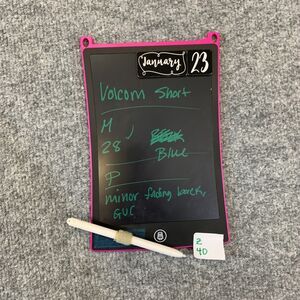 January 23
Volcom Short
M
28
Blue
P
minor fading back,
GUC
2
40